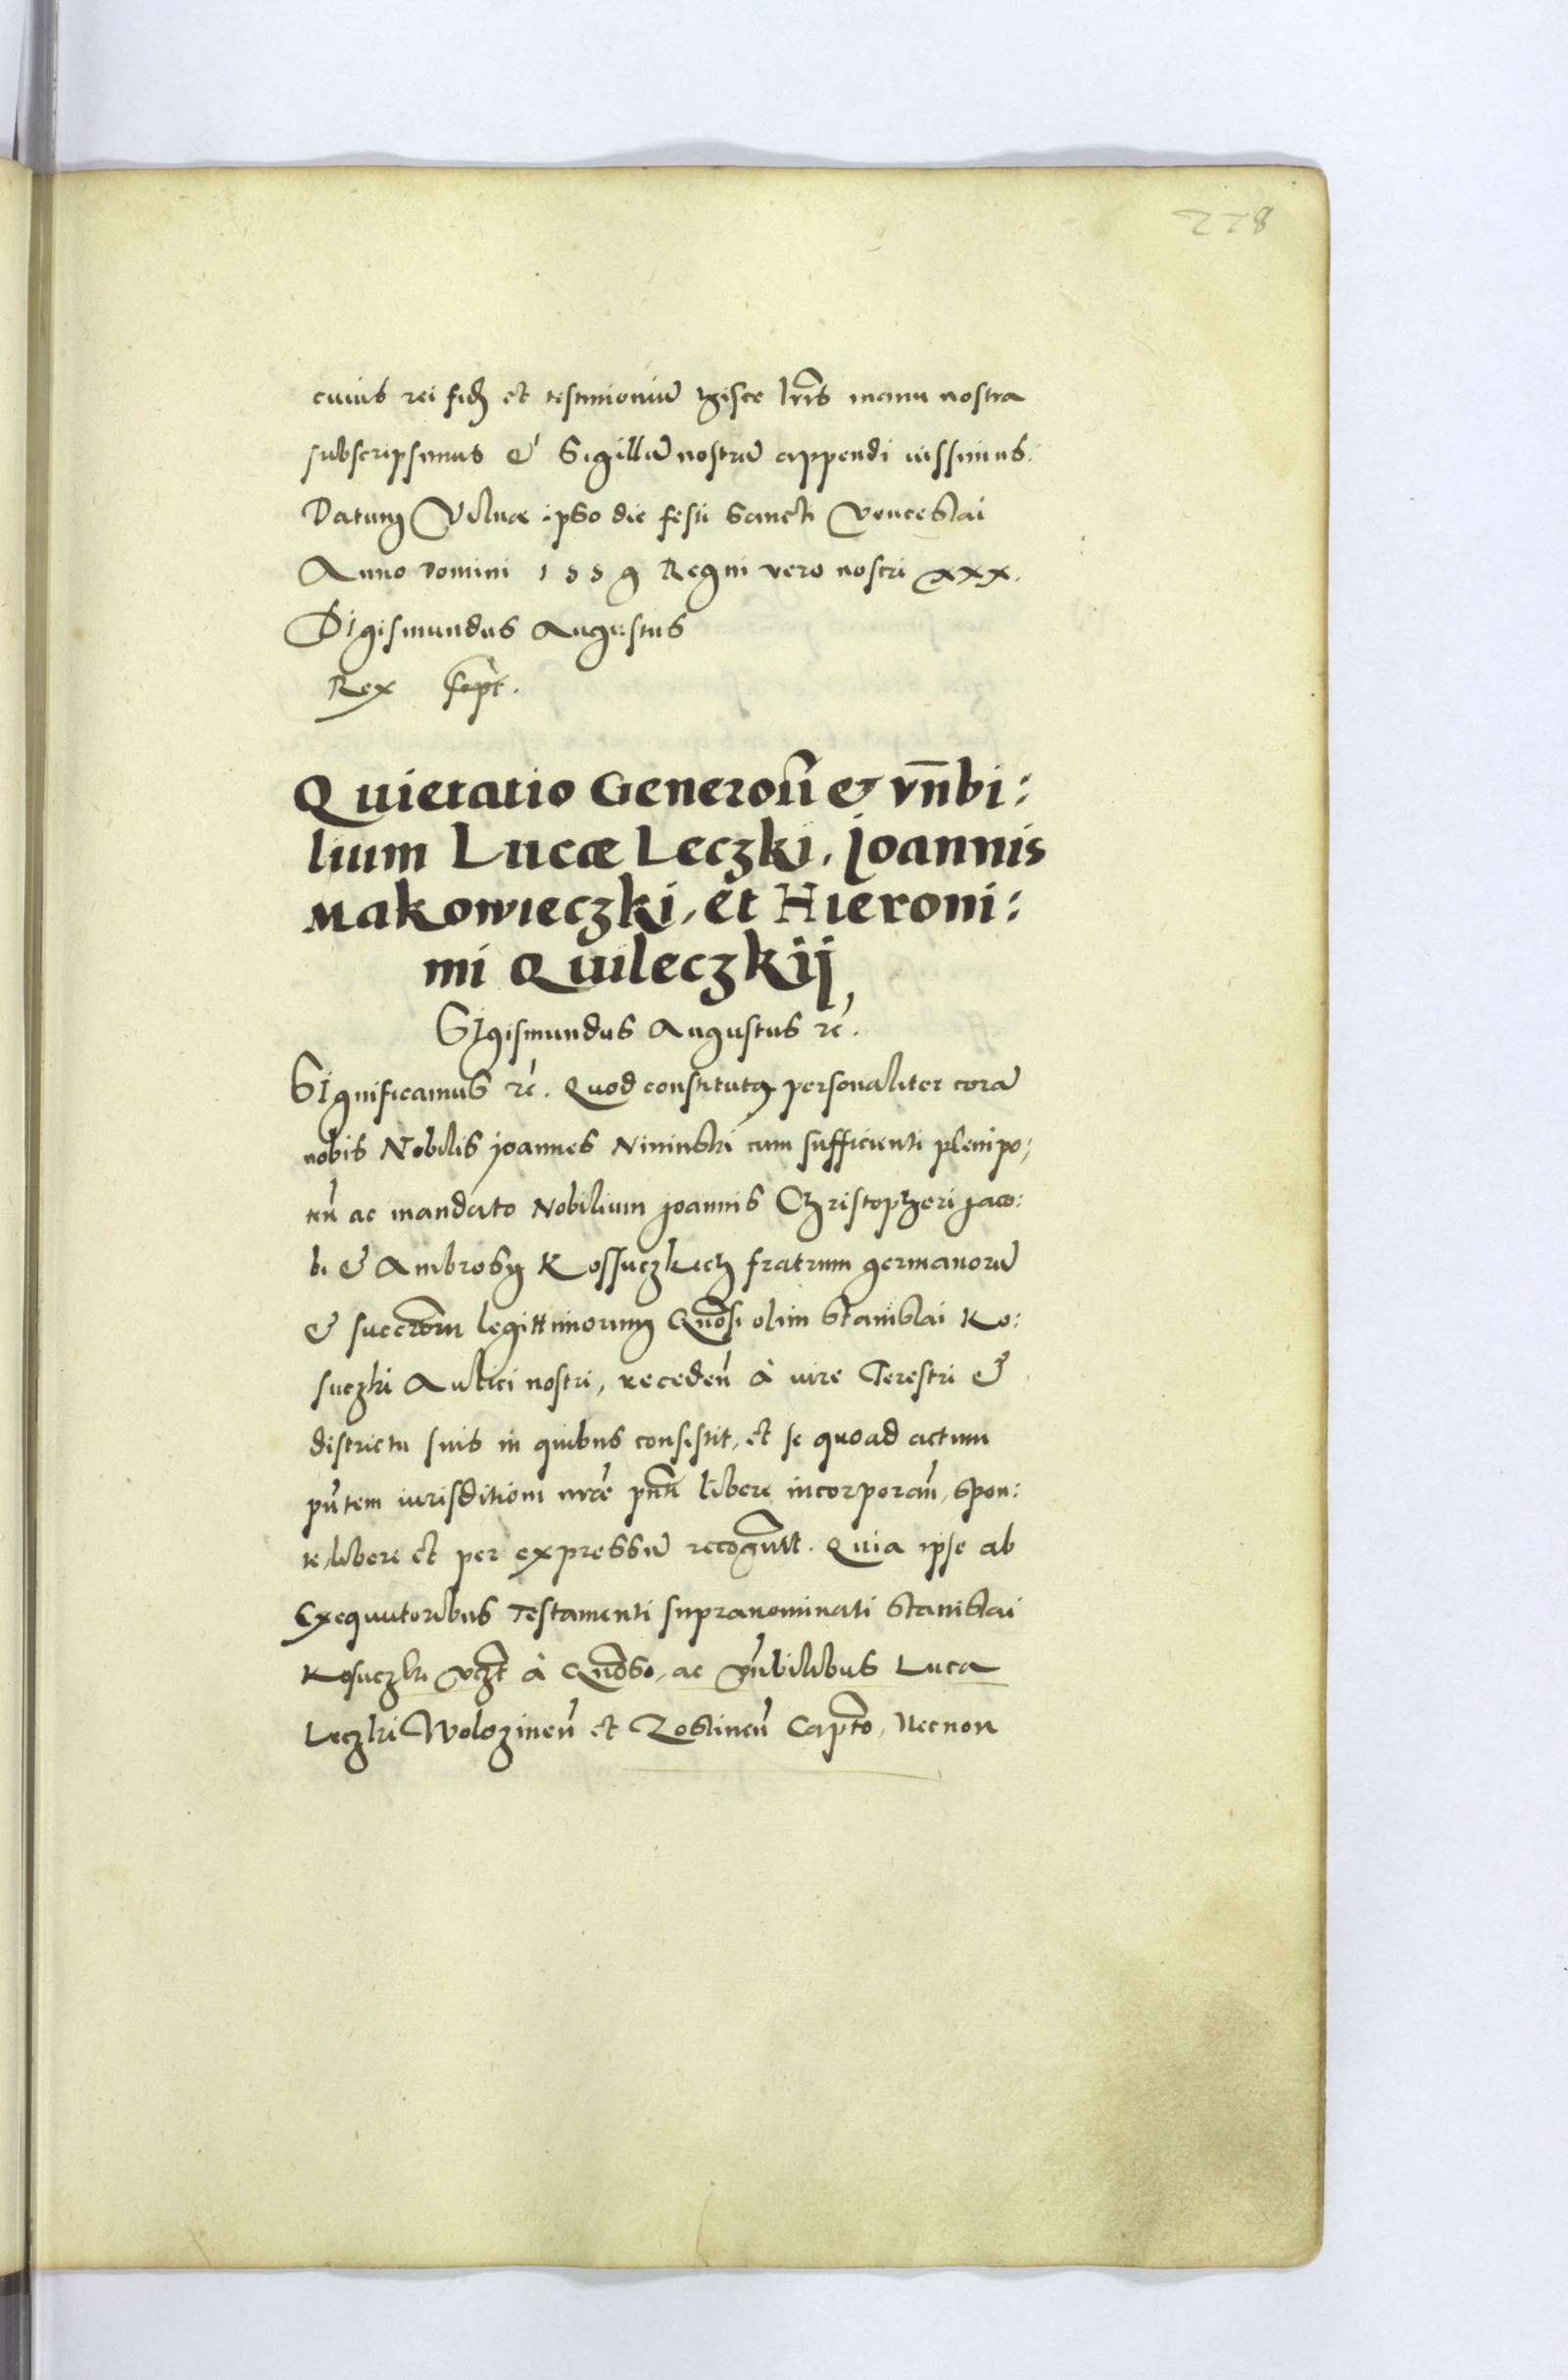 228
cuius rei fidẽ et testimoniũ hisce lr̃is manu nostra
subscripsimus & Sigillũ nostrũ appendi iussimus.
Datum Vilnæ ipso die festi Sancti Venceslai
Anno Domini 1559 Regni vero nostri xxx.
SIgismundus Augustus
Rex sspt.
Quietatio Generosũ & vn̄bi:
lium Lucæ Leczki, Joannis
Makowieczki, et Hieroni:
mi Quileczkij
SIgismundus Augustus rc̃.
SIgnificamus rc̃. Quod constitutus personaliter corã
nobis Nobilis Joannes Nininski cum sufficienti plenipo:
ten̄ ac mandato Nobilium Joannis Christopheri Jaco:
bi & Ambrosij Kossuczkich fratrum germanorũ
& succr̃orum legittimorum Gñosi olim Stanislai Ko:
suczki Aulici nostri, receden̄ à iure Terestri &
districtu suis in quibus consistit, et se quoad actum
pn̄tem iurisditioni nr̃e pn̄ti libere incorporan̄, spon:
te, libere et per expressũ recogn̄vit. Quia ipse ab
Exequutoribus Testamenti supranominati Stanislai
Kosuczki vczt̃ à Gñoso, ac vn̄bilibus Luca
Leczki Wolozinen̄ et Zoslinen̄ Capt̃o, Necnon